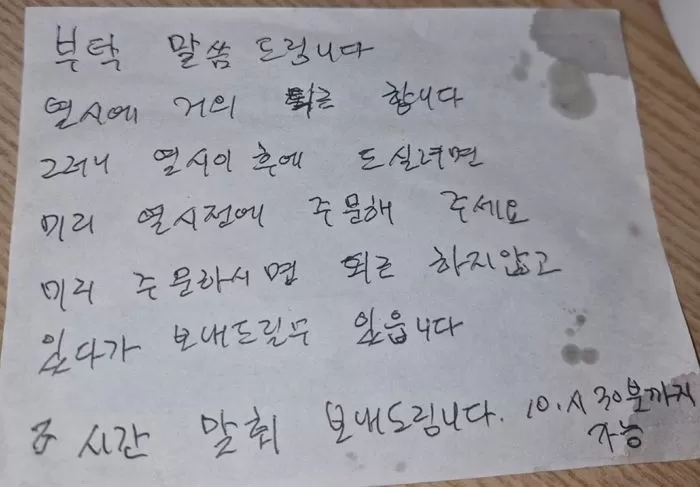 부탁 말씀 드립니다
열시에 거의 퇴근 합니다
그러니 열시이후에 드실려면
미리 열시전에 주문해 주세요
미리 주문하시면 퇴근 하지않고
있다가 보내드릴수 있읍니다
시간 말춰 보내드립니다. 10.시 30분까지
가능